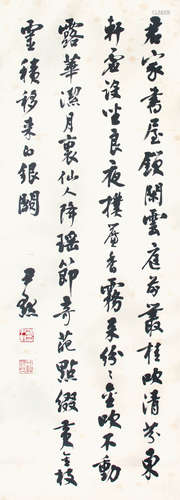 君家書屋鎖閒雲庭前叢桂吹清芬東
軒虛設坐良夜撲簾香霧來紛〻金吹不動
露華潔月裏仙人降瑤節奇葩點綴黃金枝
移來白銀闕
尹默